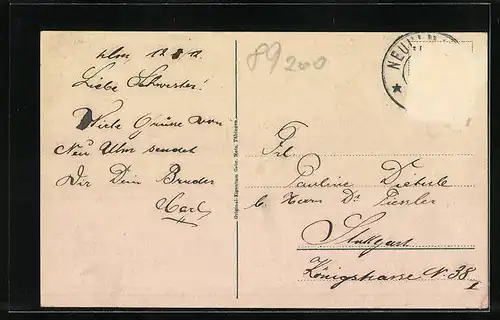 Ulm 12 8 12
Liebe Schwester!
Viele Grüsse von
Neu Ulm sendet
Dir Dein Bruder
Carl
89 200
Original-Eigentum Gebr. Metz, Tübingen
NEU ULM
Frl.
Pauline Dieterle
b. Herrn Dr.
Stuttgart
Königstrasse N. 38 I